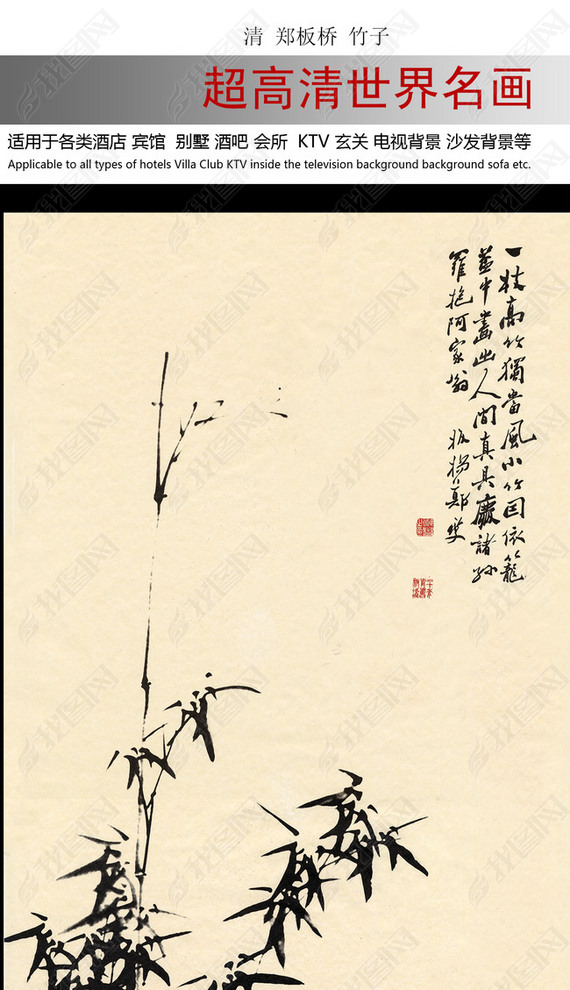 清 郑板桥 竹子
超高清世界名画
适用于各类酒店 宾馆 别墅 酒吧 会所 KTV 玄关 电视背景 沙发背景等
Applicable to all types of hotels Villa Club KTV inside the television background background sofa etc.
一枝高竹獨當風小竹因依籠
蓋中畫出人間真具慶諸孫
羅抱阿家翁 板橋鄭燮
我图网